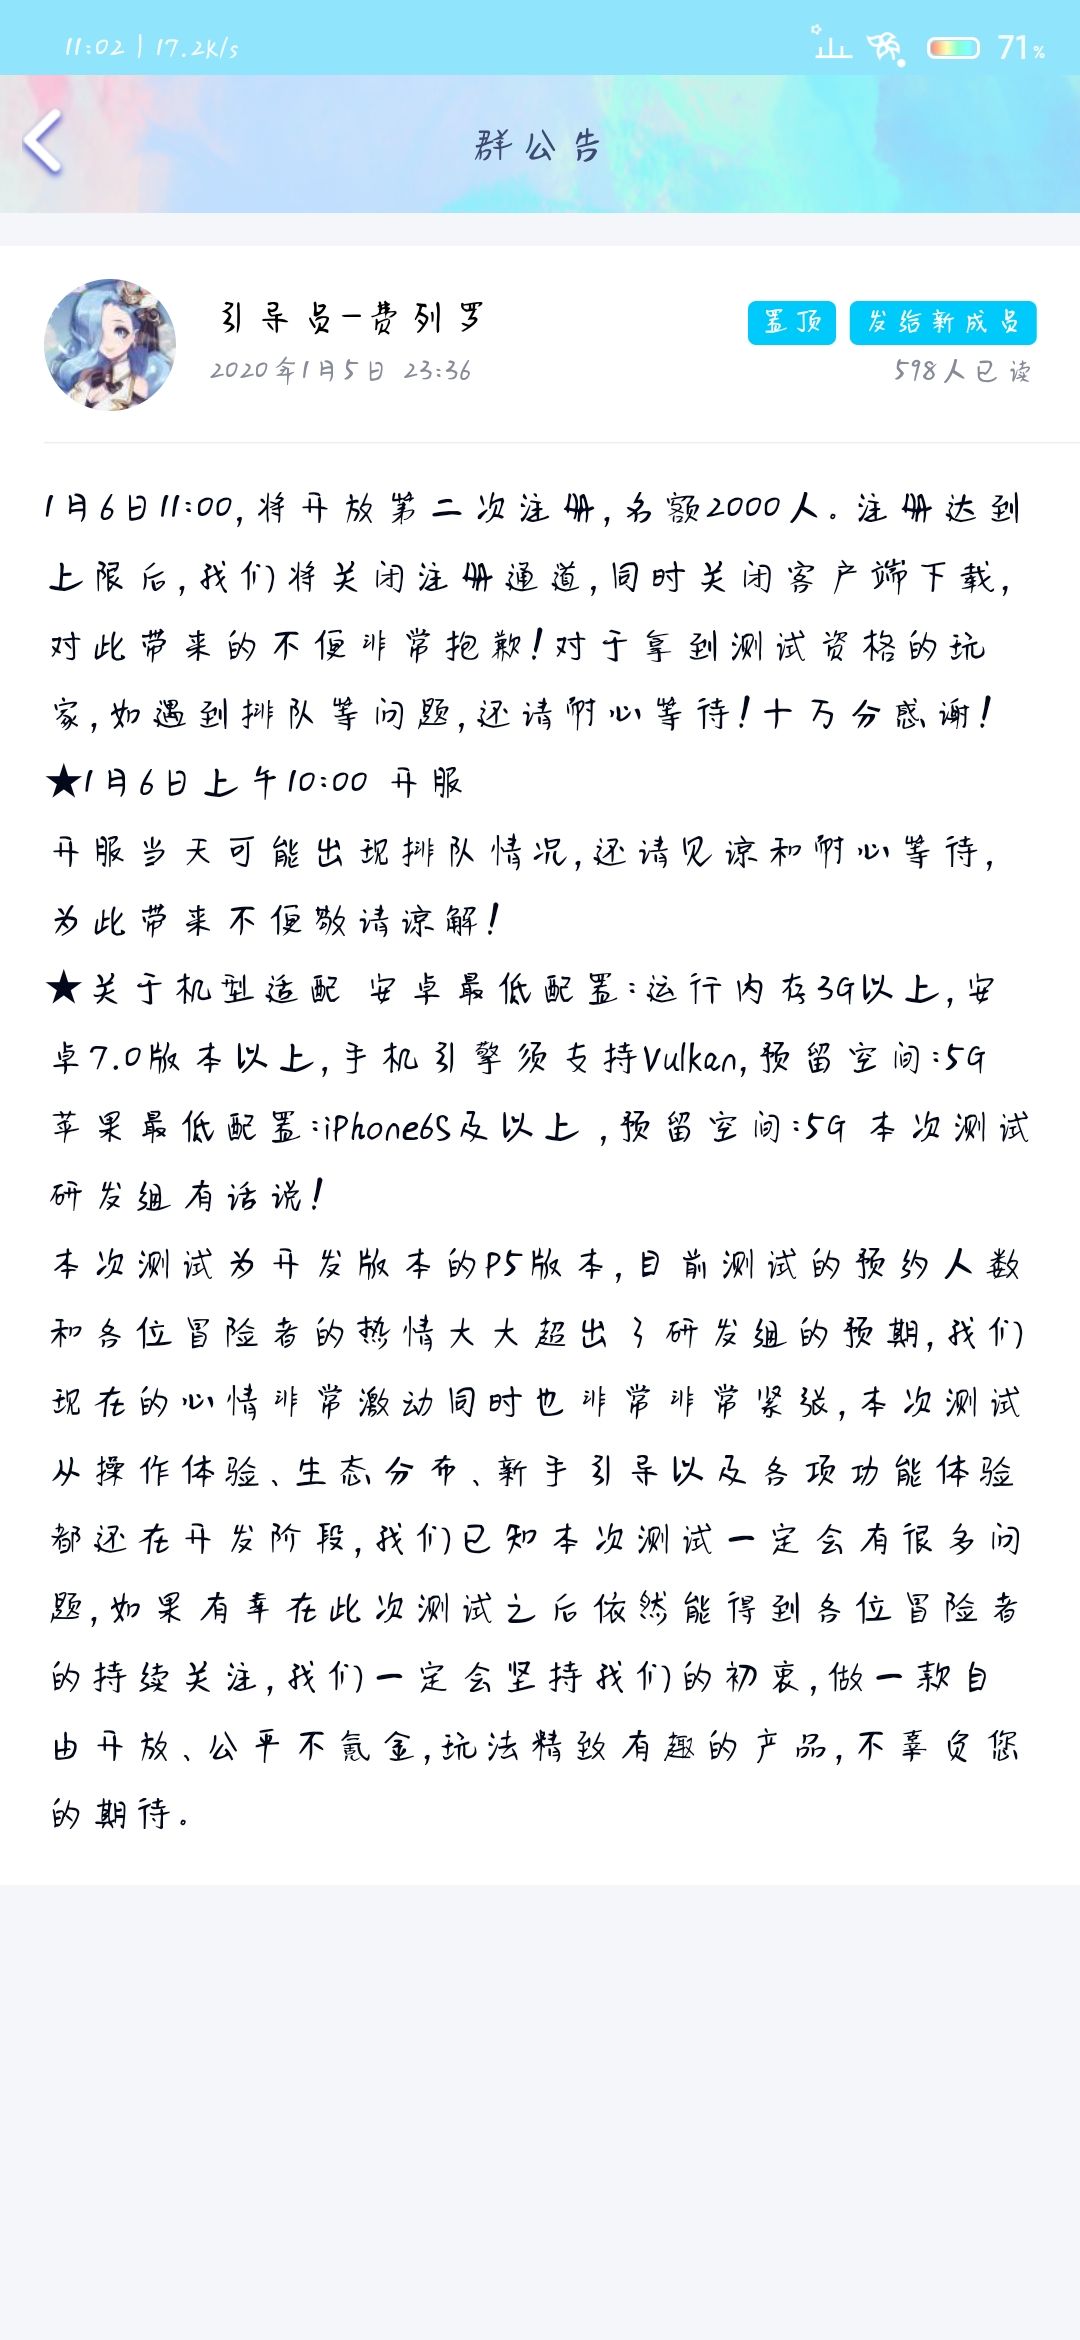 11:02 | 17.2K/s
71%
群公告
引导员—费列罗
置顶 发给新成员
2020年1月5日 23:36
598人已读
1月6日11:00,将开放第二次注册,名额2000人。注册达到
上限后,我们将关闭注册通道,同时关闭客户端下载,
对此带来的不便非常抱歉!对于拿到测试资格的玩
家,如遇到排队等问题,还请耐心等待!十万分感谢!
★1月6日上午10:00 开服
开服当天可能出现排队情况,还请见谅和耐心等待,
为此带来不便敬请谅解!
★关于机型适配 安卓最低配置:运行内存3G以上,安
卓7.0版本以上,手机引擎须支持Vulkan,预留空间:5G
苹果最低配置:iPhone6S及以上 ,预留空间:5G 本次测试
研发组有话说!
本次测试为开发版本的P5版本,目前测试的预约人数
和各位冒险者的热情大大超出了研发组的预期,我们
现在的心情非常激动同时也非常非常紧张,本次测试
从操作体验、生态分布、新手引导以及各项功能体验
都还在开发阶段,我们已知本次测试一定会有很多问
题,如果有幸在此次测试之后依然能得到各位冒险者
的持续关注,我们一定会坚持我们的初衷,做一款自
由开放、公平不氪金,玩法精致有趣的产品,不辜负您
的期待。